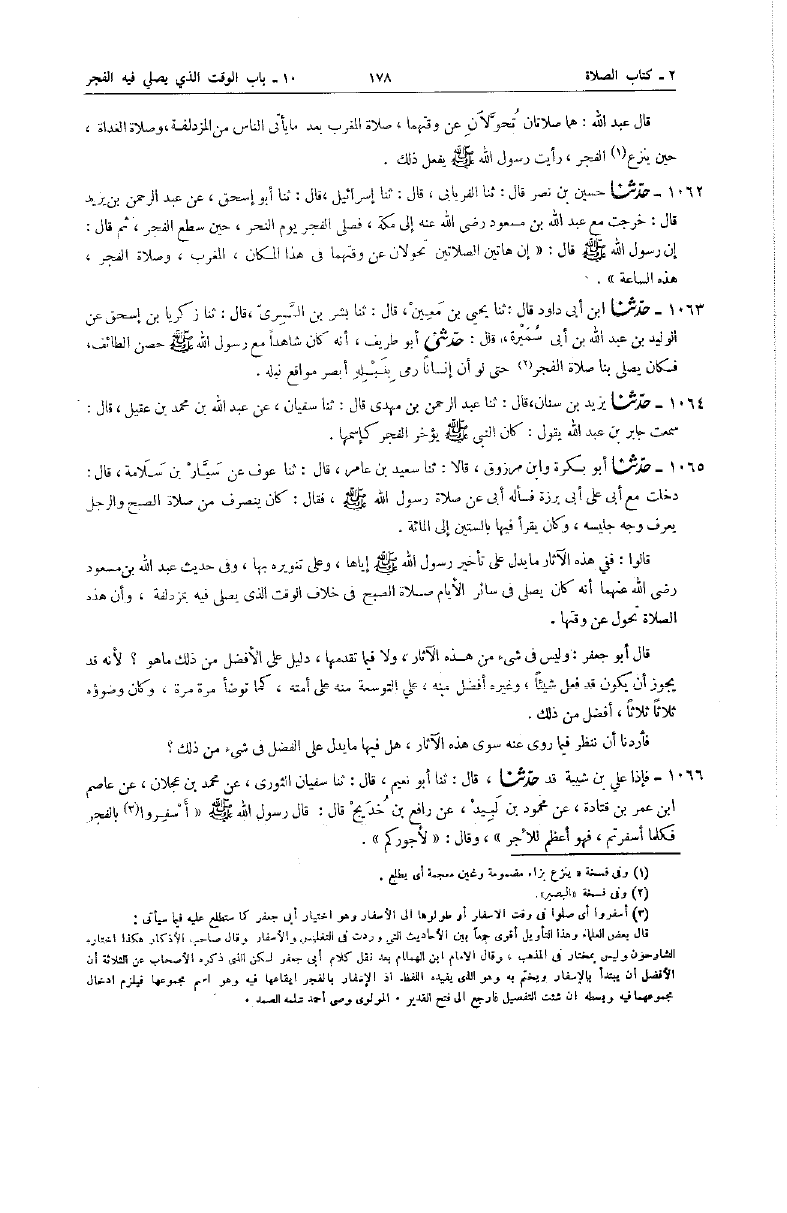 ٢ ـ كتاب الصلاة ١٧٨ ١٠ ـ باب الوقت الذي يصلى فيه الفجر
قال عبد الله : هما صلاتان تُحوَّلَان عن وقتهما ، صلاة المغرب بعد مايأتى الناس من المزدلفة،وصلاة الغداة ،
حين ينزع(١) الفجر ، رأيت رسول الله ﷺ يفعل ذلك .
١٠٦٢ ـ حدّثنا حسين بن نصر قال : ثنا الفريابى ، قال : ثنا إسرائيل ،قال : ثنا أبو إسحق ، عن عبد الرحمن بن يزيد
قال : خرجت مع عبد الله بن مسعود رضى الله عنه إلى مكة ، فصلى الفجر يوم النحر ، حين سطع الفجر ، ثم قال :
إن رسول الله ﷺ قال : « إن هاتين الصلاتين تحولان عن وقتهما فى هذا المكان ، المغرب ، وصلاة الفجر ،
هذه الساعة » .
١٠٦٣ ـ حدّثنا ابن أبى داود قال :ثنا يحيى بن مَعِينْ، قال : ثنا بشر بن السَّرِىّ ،قال : ثنا زكريا بن إسحق عن
الوليد بن عبد الله بن أبى سُمَيْرة ، قال : حدّثنى أبو طريف ، أنه كان شاهداً مع رسول الله ﷺ حصن الطائف،
فكان يصلى بنا صلاة الفجر(٢) حتى لو أن إنساناً رمى بِنَبْلِهِ أبصر مواقع نبله .
١٠٦٤ ـ حدّثنا يزيد بن سنان،قال : ثنا عبد الرحمن بن مهدى قال : ثنا سفيان ، عن عبد الله بن محمد بن عقيل ، قال :
سمعت جابر بن عبد الله يقول : كان النبى ﷺ يؤخر الفجر كاسمها .
١٠٦٥ ـ حدّثنا أبو بكرة وابن مرزوق ، قالا : ثنا سعيد بن عامر ، قال : ثنا عوف عن سَيَّارْ بن سَلَامة ، قال :
دخلت مع أبى على أبى برزة فسأله أبى عن صلاة رسول الله ﷺ ، فقال : كان ينصرف من صلاة الصبح والرجل
يعرف وجه جليسه ، وكان يقرأ فيها بالستين إلى المائة .
قالوا : ففى هذه الآثار مايدل على تأخير رسول الله ﷺ إياها ، وعلى تنويره بها ، وفى حديث عبد الله بن مسعود
رضى الله عنهما أنه كان يصلى فى سائر الأيام صلاة الصبح فى خلاف الوقت الذى يصلى فيه بمزدلفة ، وأن هذه
الصلاة تحول عن وقتها .
قال أبو جعفر : وليس فى شىء من هـذه الآثار ، ولا فيما تقدمها ، دليل على الأفضل من ذلك ماهو ؟ لأنه قد
يجوز أن يكون قد فعل شيئاً ، وغيره أفضل منه ، على التوسعة منه على أمته ، كما توضأ مرة مرة ، وكان وضوؤه
ثلاثاً ثلاثاً ، أفضل من ذلك .
فأردنا أن ننظر فيما روى عنه سوى هذه الآثار ، هل فيها مايدل على الفضل فى شىء من ذلك ؟
١٠٦٦ ـ فإذا على بن شيبة قد حدّثنا ، قال : ثنا أبو نعيم ، قال : ثنا سفيان الثورى ، عن محمد بن عجلان ، عن عاصم
ابن عمر بن قتادة ، عن محمود بن لَبِيدْ ، عن رافع بن خُدَيجْ قال : قال رسول الله ﷺ « أَسفِروا(٣) بالفجر
فكلما أسفرتم ، فهو أعظم للأجر » ، وقال : « لأجوركم » .
(١) وفى نسخة « ينزغ بزاء مضمومة وغين معجمة أى يطلع .
(٢) وفى نسخة «البصير».
(٣) أسفروا أى صلوا فى وقت الاسفار أو طولوها الى الأسفار وهو اختيار أبى جعفر كما ستطلع عليه فيما سيأتى :
قال بعض العلماء وهذا التأويل أقوى جمعاً بين الأحاديث التى وردت فى التغليس والأسفار وقال صاحب الأذكار هكذا اختاره
الشارحون وليس بمختار فى المذهب ، وقال الامام ابن الهمام بعد نقل كلام أبى جعفر لكن الذى ذكره الأصحاب عن الثلاثة أن
الأفضل أن يبتدأ بالإسفار ويختم به وهو الذى يفيده اللفظ اذ الإسفار بالفجر ايقاعها فيه وهو اسم مجموعها فيلزم ادخال
مجموعهما فيه وبسطه ان شئت التفصيل فارجع الى فتح القدير ٠ المولوى وصى أحمد سلمه الصمد ٠